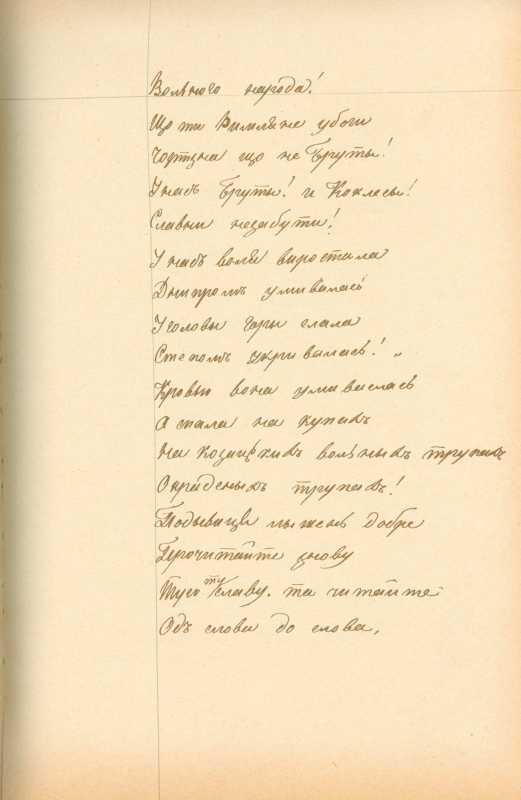 Вольного народа!
Що ти Римляне убоги
Чортзна що не Бруты!
У насъ Бруты! и Коклесы!
Славни незабути!
У насъ воля виростала
Днипромъ умивалась
У головы горы слала
Степомъ укривалась! „
Кровью вона умивалась
А спала на купахъ
На козацькихъ вольныхъ трупахъ
Окраденыхъ трупахъ!
Подывицця лыжень добре
Прочитайте знову
Тую ту славу. та читайте
Одъ слова до слова,